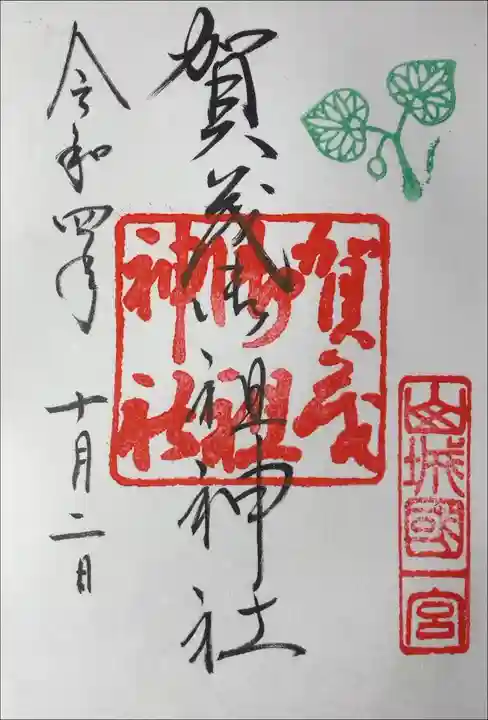 山城國一宮
賀茂御祖神社
賀茂御祖神社
令和四年 十月二日